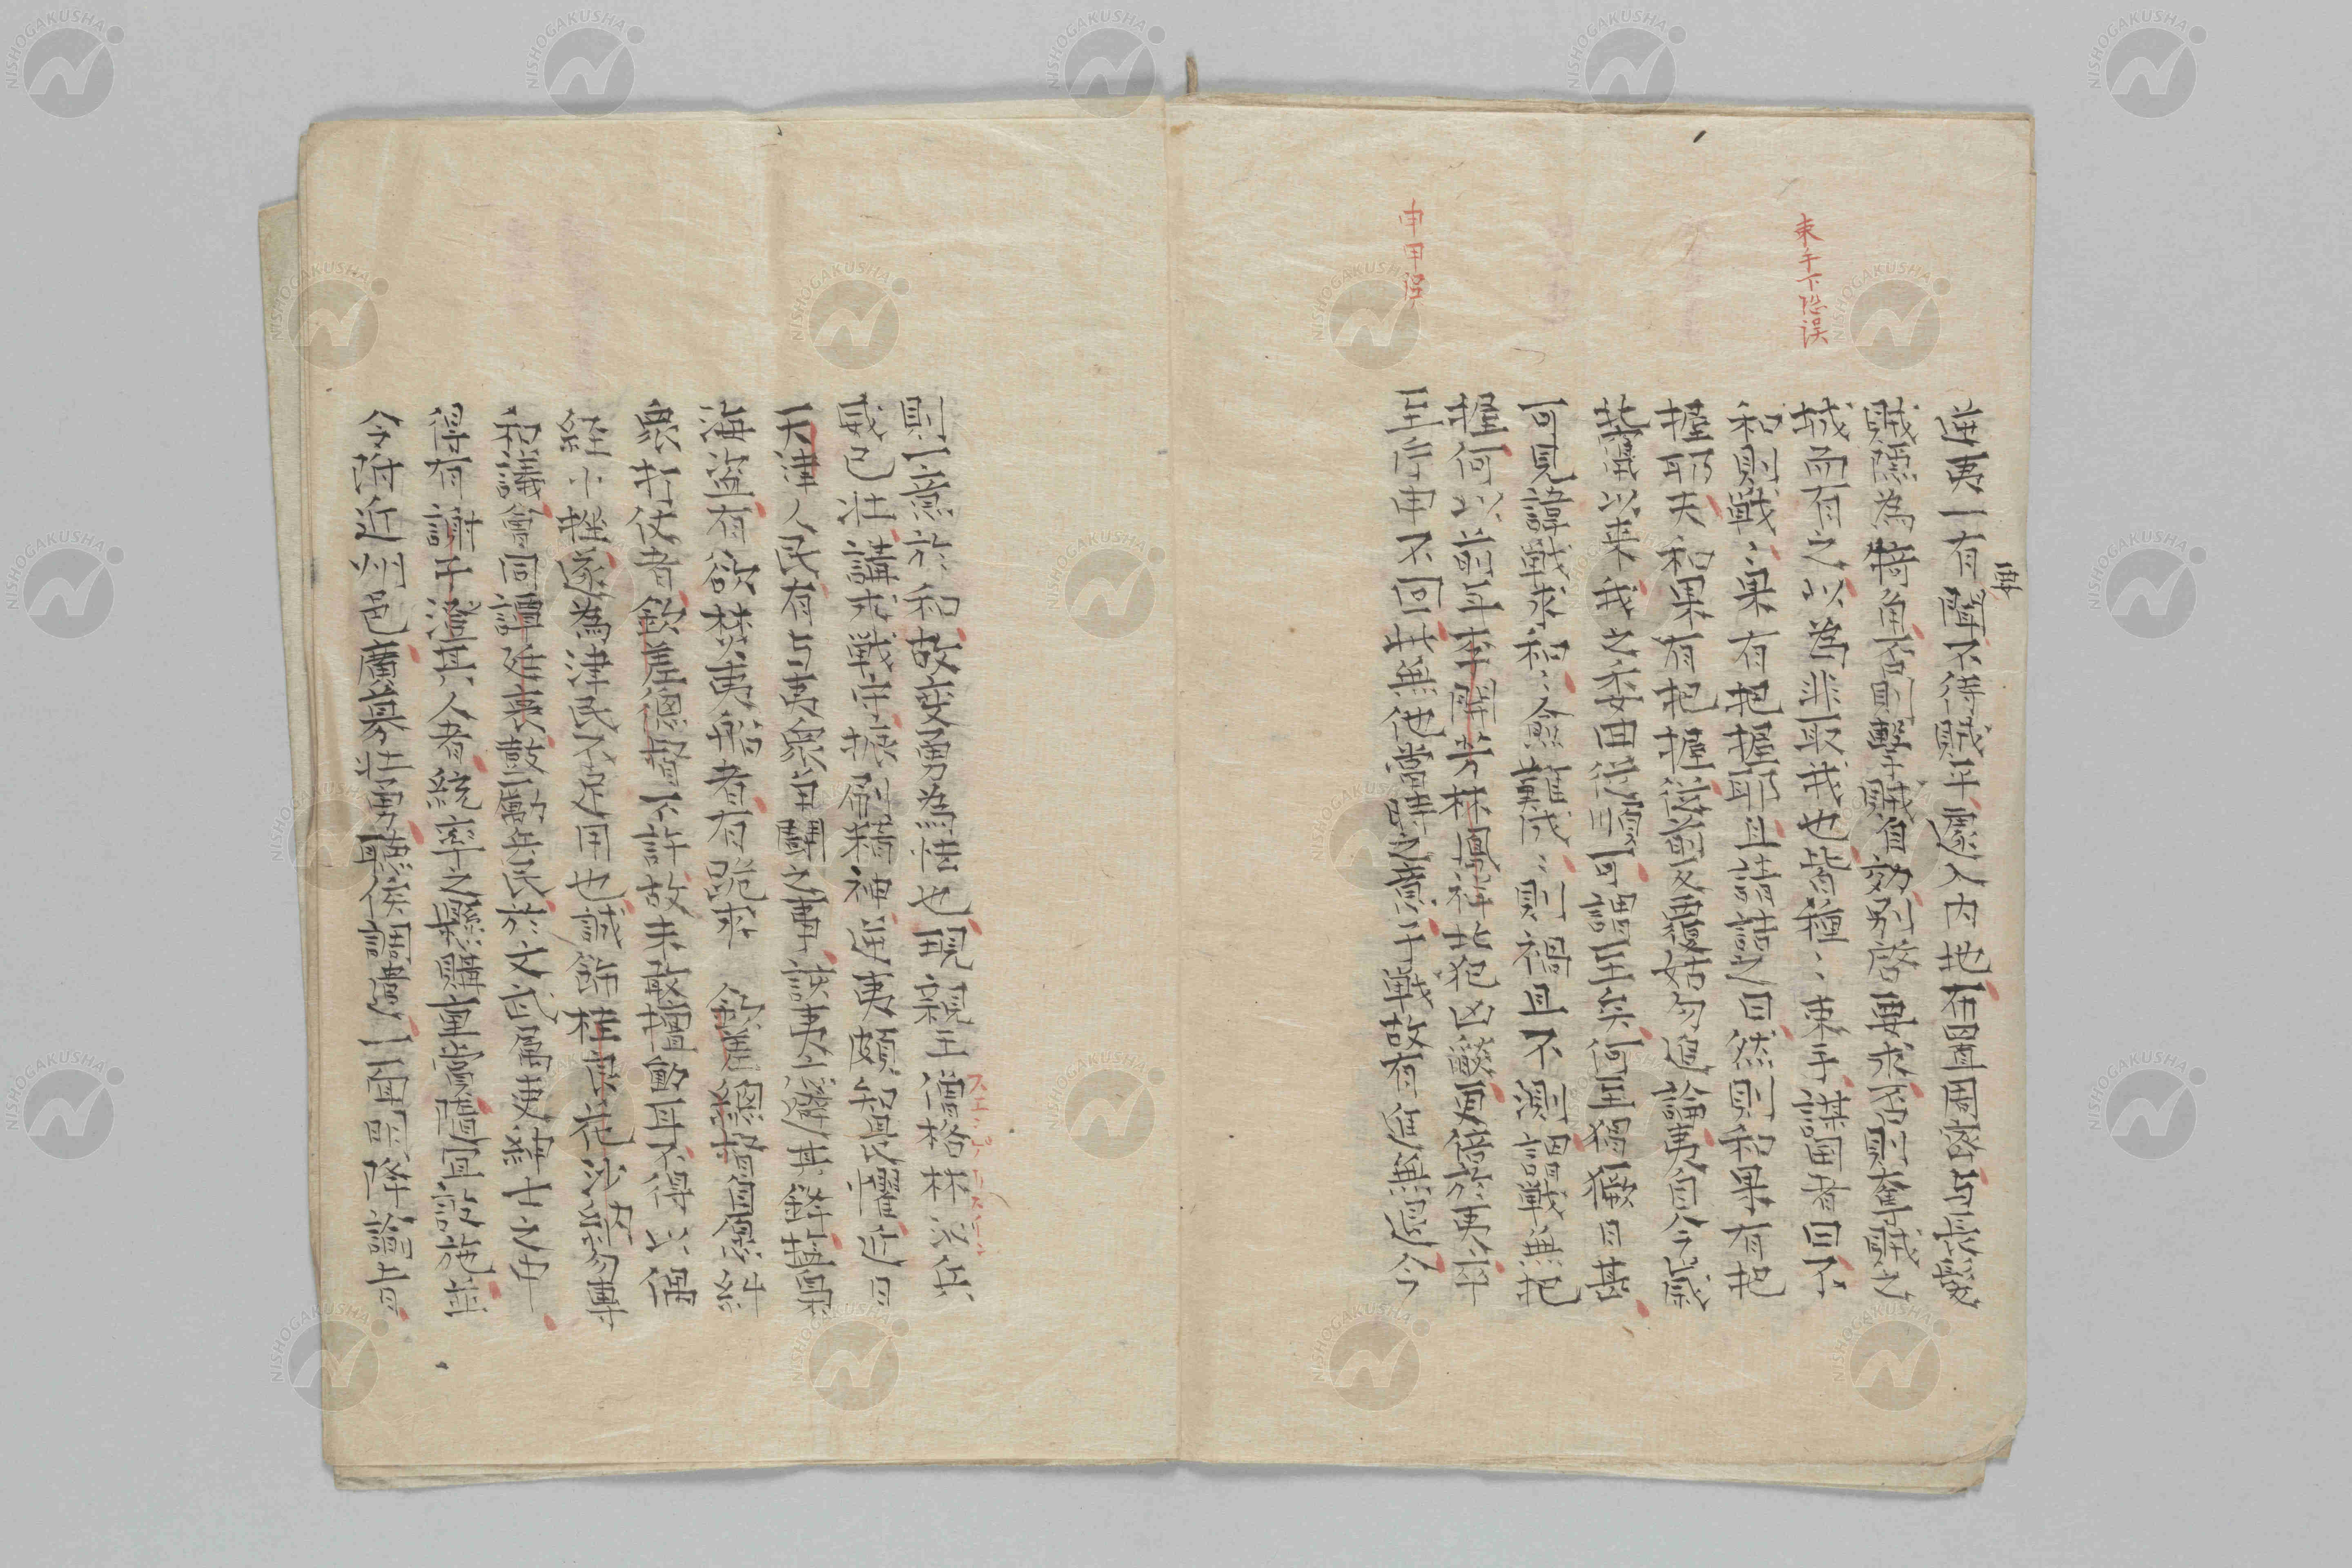 束手下恐誤
申甲俗
再
逆夷一有聞不待賊平遽入内地布置周密与長髪
賊隠為犄角否則撃賊自効別啓要求否則奪賊之
城而有之以為非取我也皆種ミ束手謀国者曰不
和則戦ミ果有把握耶且請詰之曰然則和果有把
握耶夫和果有把握従前反覆姑勿追論東自今歳
講以来我之委曲従順可謂至矣何至猖獗日甚
可見諱戦求和ミ愈難成ミ則禍且不測謂戦無把
握何以前年李開芳林鳳祥北犯凶燄更倍於夷卒
至片甲不回此無他当時意于戦故有進無退今
則一意於和故变勇為怯也現親王僧格林沁兵
威已壮講求戦守振刷精神逆夷頗知畏懼近日
天津人民有与夷衆争闘之事該夷亦避其鋒擒梟
海盗有欲焚夷船者有跪求 欽差総督自備糾
衆打仗者欽差総督不許故未敢擅動耳不得以偶
経小挫遂為津民不足用也誠飭桂良花沙納勿専
和議会同譚廷襄鼓励兵民於文武属吏紳士之中
得有謝子澄其人者統率之懸購重賞随宜設施並
令附近州邑廣募壮勇聴候調遣一面明降諭旨